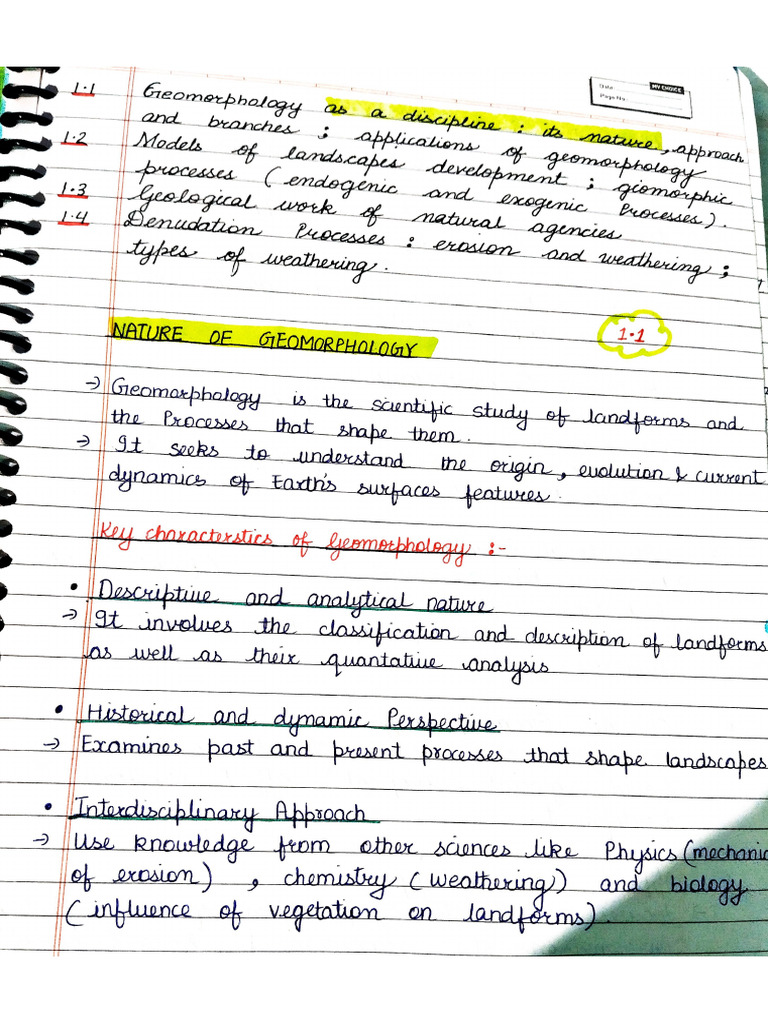 Date
MY CHOICE
Page No.
1.1 Geomorphology as a discipline : its nature, approach
and branches ; applications of geomorphology
1.2 Models of landscapes development ; giomorphic
processes (endogenic and exogenic Processes).
1.3 Geological work of natural agencies
1.4 Denudation Processes : erosion and weathering ;
types of weathering.
NATURE OF GEOMORPHOLOGY
1.1
→ Geomorphology is the scientific study of landforms and
the Processes that shape them.
→ It seeks to understand the origin, evolution & current
dynamics of Earth's surfaces features.
Key characterstics of Geomorphology :-
• Descriptive and analytical nature
→ It involves the classification and description of landforms
as well as their quantative analysis
• Historical and dynamic Perspective
→ Examines past and present processes that shape landscapes
• Interdisciplinary Approach
→ Use knowledge from other sciences like Physics (mechanic
of erosion) , chemistry (weathering) and biology
(influence of vegetation on landforms).